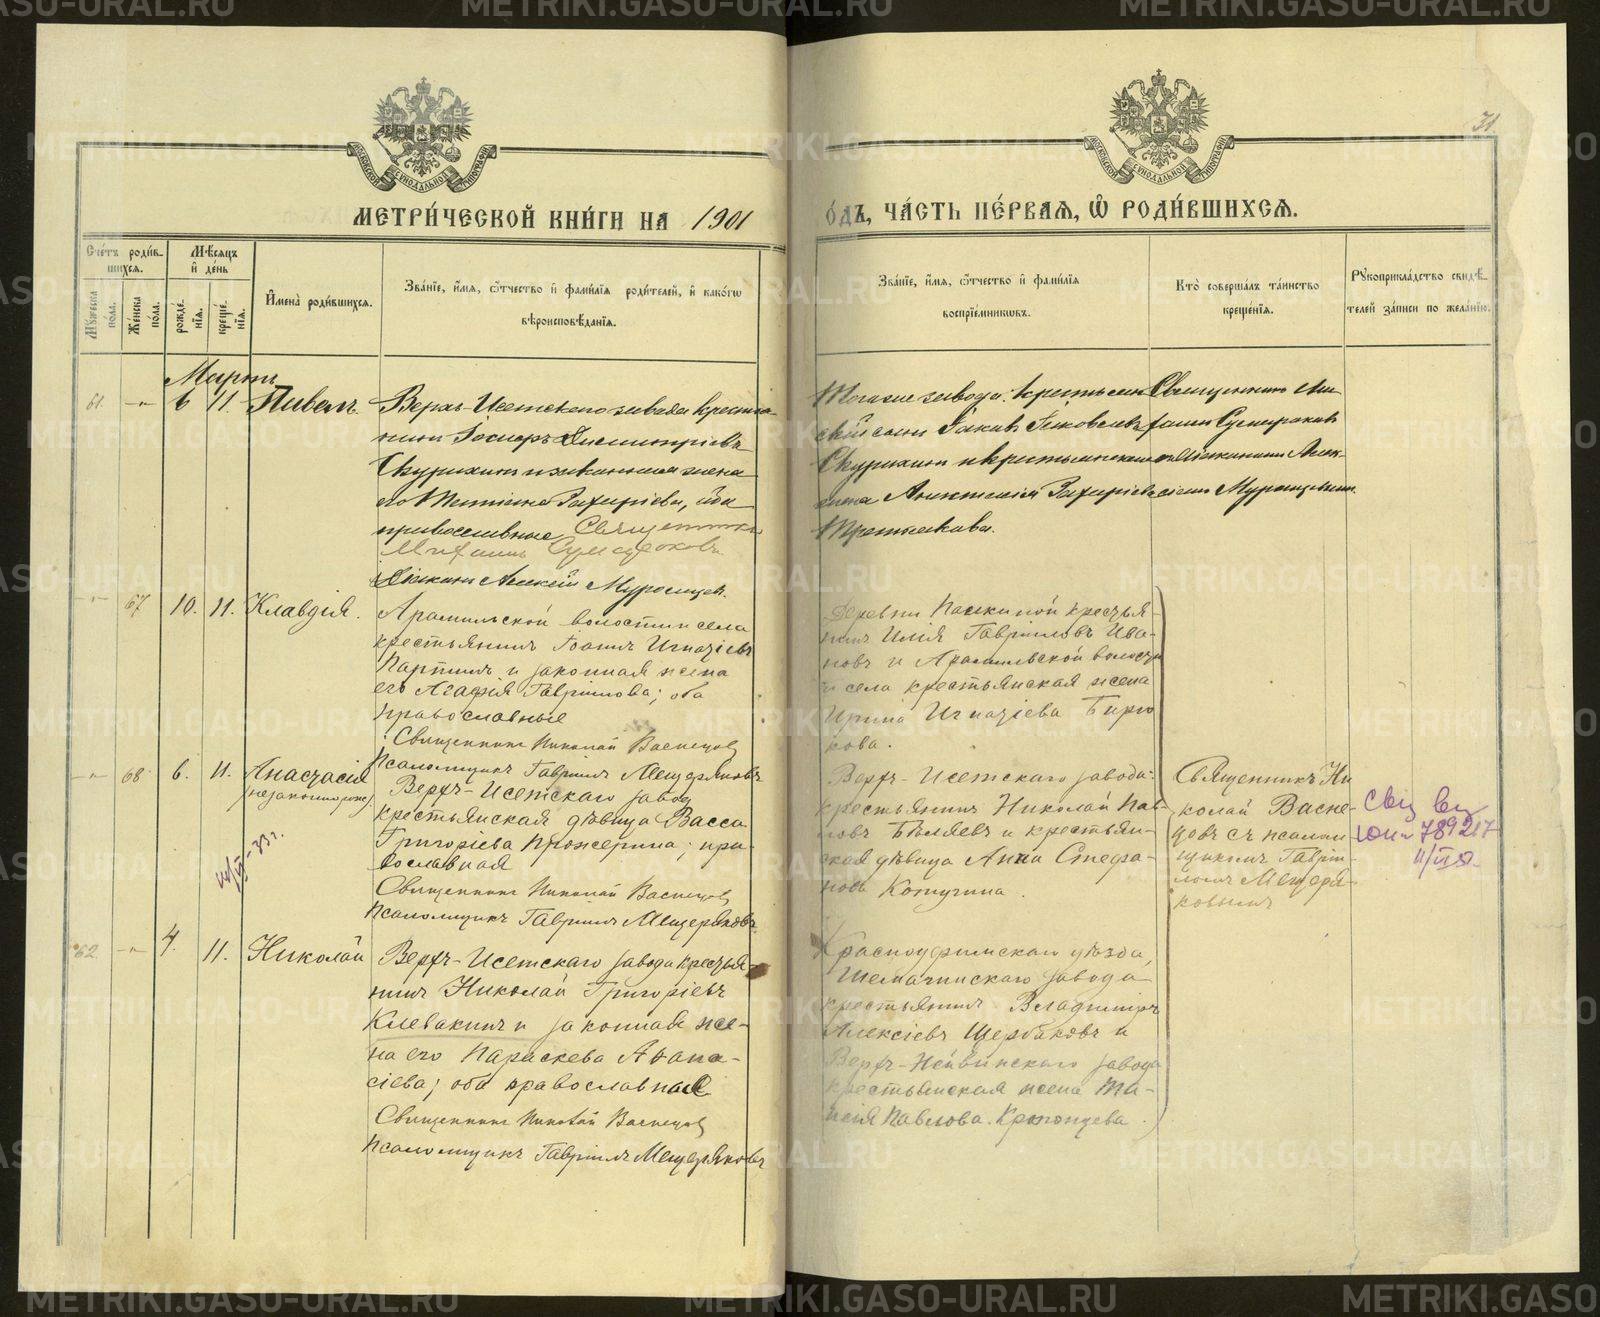 METRIKI.GASO-URAL.RU
31
МОСКОВСКОЙ СѴНОДАЛЬНОЙ ТИПОГРАФІИ
МЕТРИ́ЧЕСКОЙ КНИ́ГИ НА 1901
О́ДЪ, ЧА́СТЬ ПЕ́РВАЯ, Ѡ҆ РОДИ́ВШИХСЯ.
Сче́тъ роди́в-
шихся.
Мѣ́сяцъ
и҆ де́нь
Мꙋ́жеска
по́ла.
Же́нска
по́ла.
рожде́-
нїя.
креще́-
нїя.
И҆мена̀ роди́вшихся.
Зва́нїе, и҆́мя, ѻ҆́тчество и҆ фами́лїя роди́телей, и҆ како́гѡ
вѣроисповѣ́данїя.
Зва́нїе, и҆́мя, ѻ҆́тчество и҆ фами́лїя
воспрїе́мникѡвъ.
Кто̀ соверша́лъ та́инство
креще́нїя.
Рꙋкоприкла́дство свидѣ́-
телей за́писи по жела́нїю.
Мартъ
61. -"- 6 11. Павелъ.
Верхъ-Исетского завода крестья-
нинъ Іосифъ Димитріевъ
Скурихинъ и законная жена
его Татіана, оба
православные Священникъ
Михаилъ Сумароковъ
Діаконъ Алексій Муромцевъ.
Тогоже завода крестьян
скій сынъ Іаковъ Іаковлевъ
Скурихинъ и крестьянская
Третьякова.
Священникъ Ми-
хаилъ Сумароковъ
съ діакономъ Алек-
сіемъ Муромцевымъ
-"- 67. 10. 11. Клавдія.
Арамильской волости и села
крестьянинъ Іоаннъ Игнатіевъ
Паргинъ и законная жена
его Агафія Гаврилова; оба
православные
Священникъ Николай Васнецов
Псаломщикъ Гавріилъ Мещеряковъ
Деревни крестья-
нинъ Илія Гавріиловъ Ива-
новъ и Арамильской волости
и села крестьянская жена
Ирина Игнатіева Бирю
кова.
-"- 68 6. 11. Анастасія
(незаконнорожд.)
Верхъ-Исетскаго завод
крестьянская дѣвица Васса
Григоріева; пра-
вославная
Священникъ Николай Васнецов
Псаломщикъ Гавріилъ Мещеряковъ
Верхъ-Исетскаго завода:
крестьянинъ Николай Пав-
ловъ Бѣляевъ и крестьян-
ская дѣвица Анна Стефа-
нова Котугина.
Священникъ Ни
колай Васне-
цовъ съ псалом
щикомъ Гаврі-
иломъ Мещеря-
ковымъ
789217
62 -"- 4. 11. Николай
Верхъ-Исетскаго завода крестья-
нинъ Николай Григоріевъ
Клевакинъ и законная же-
на его Параскева Аѳана-
сіева; оба православные
Священникъ Николай Васнецов
Псаломщикъ Гавріилъ Мещеряковъ
Красноуфимскаго уѣзда,
Шемахинскаго завода
крестьянинъ Владимиръ
Алексіевъ Щербаковъ и
Верхъ-Нейвинскаго завода
крестьянская жена Таи-
сія Павлова